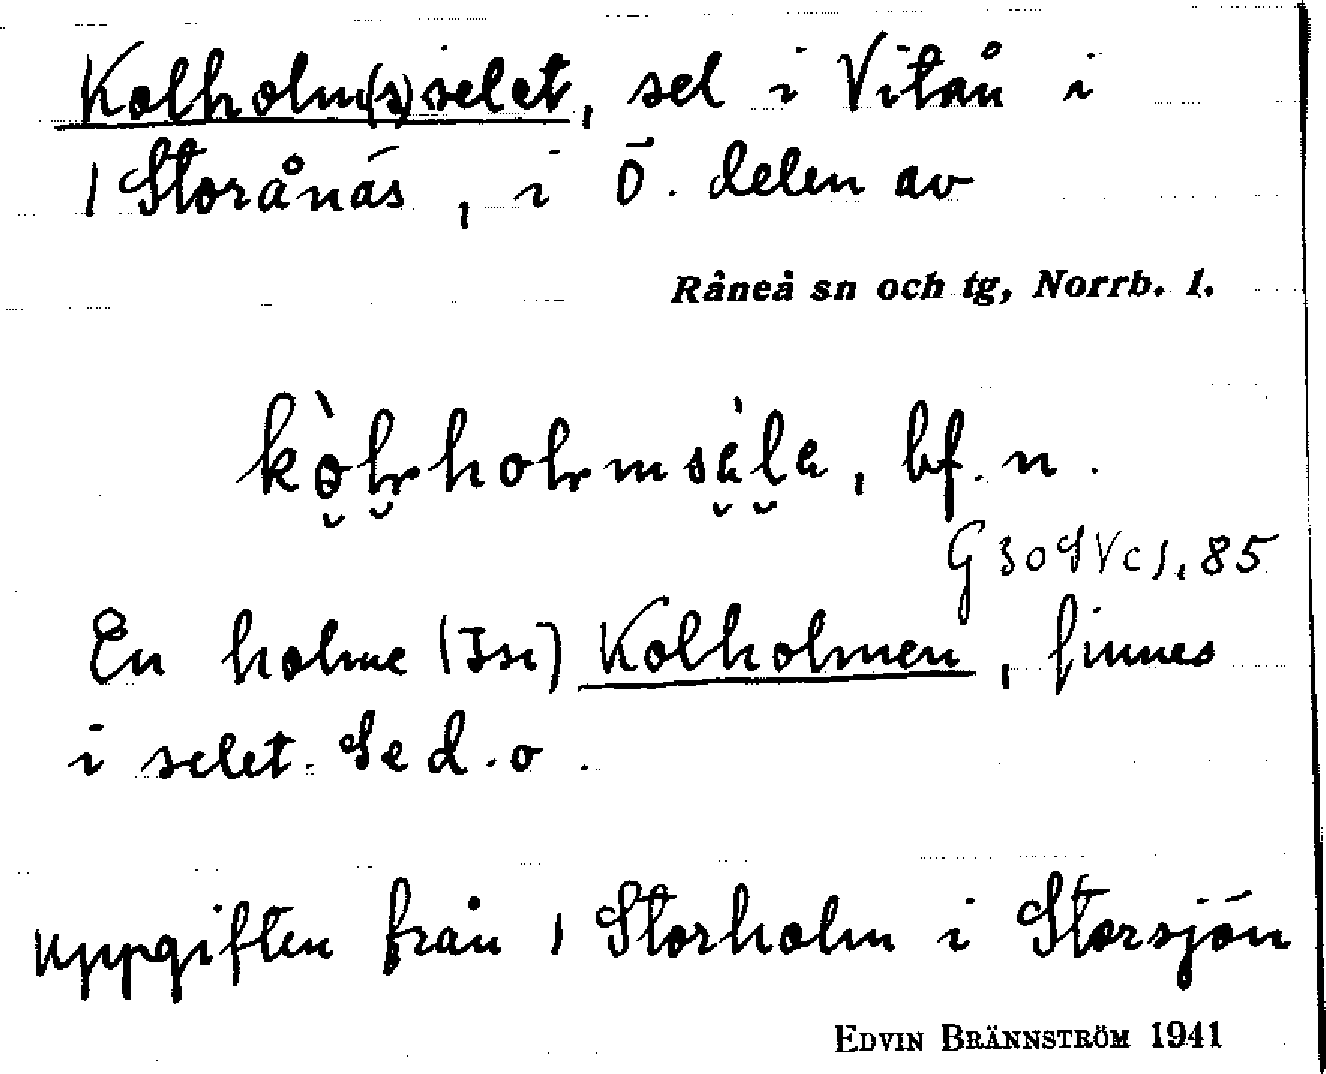 Kolholm(s)selet, sel i Vitån i
/ Storånäs, i Ö. delen av
Råneå sn och tg, Norrb. l.
bf. n.
G 30 d V c 1, 85
En holme (Isn) Kolholmen, finnes
i selet. Se d. o.
uppgiften från / Storholm i Storsjön
EDVIN BRÄNNSTRÖM 1941